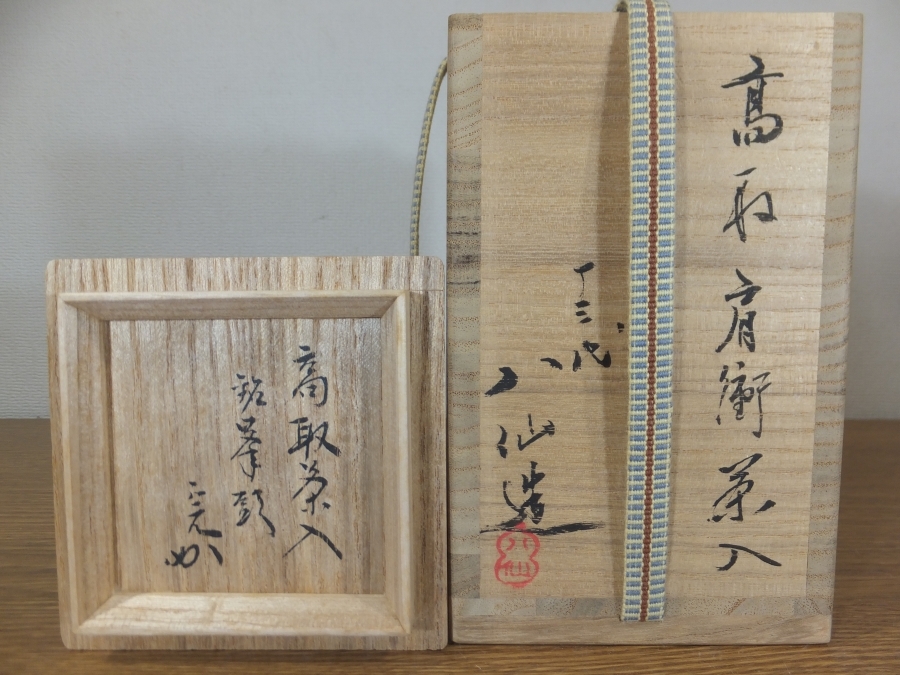 高取肩衝茶入
十三代
八仙造
八仙
高取茶入
銘峯越